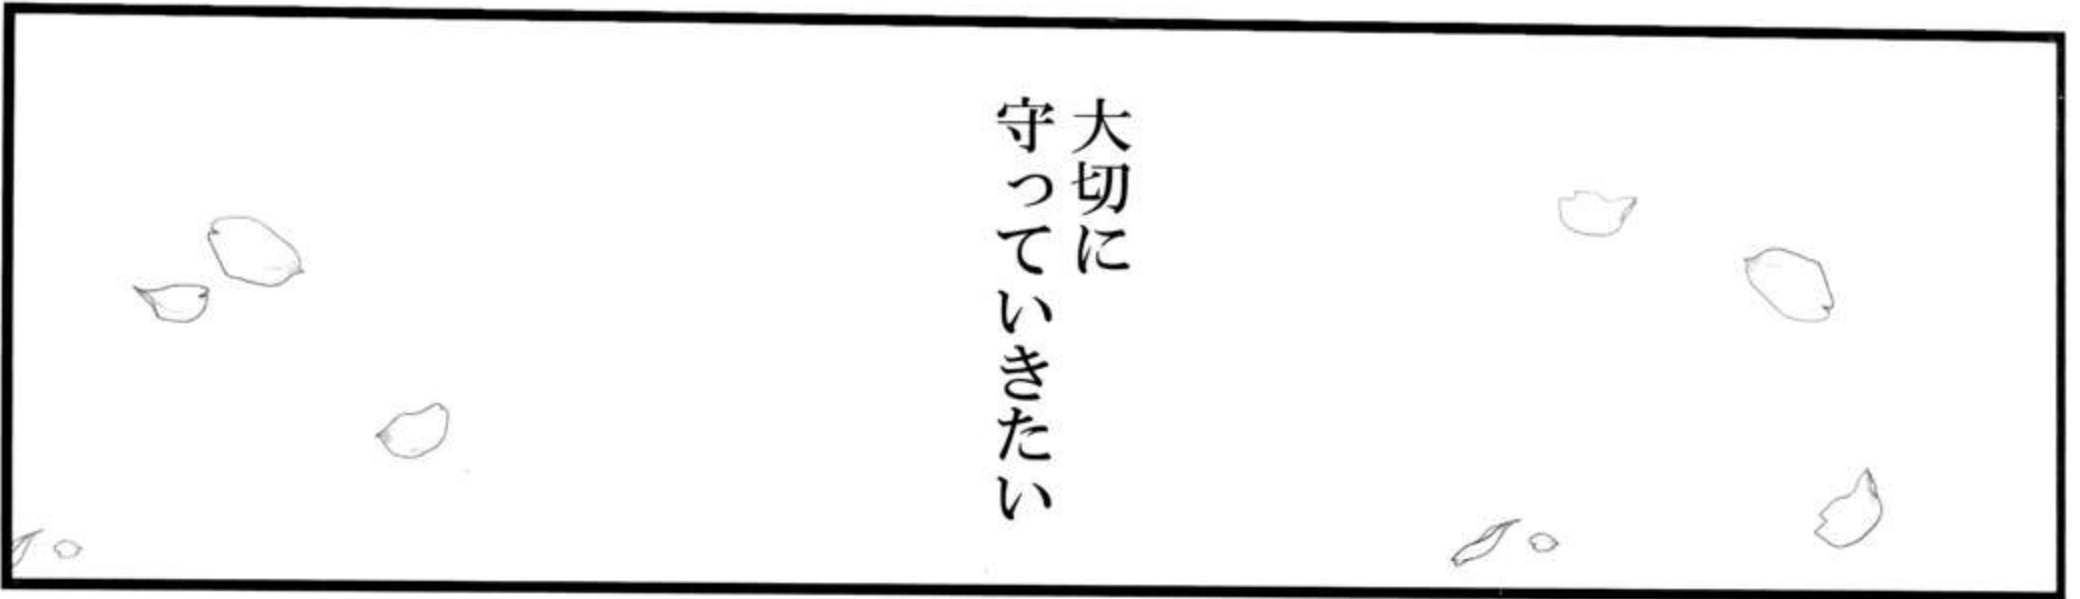 大切に
守っていきたい